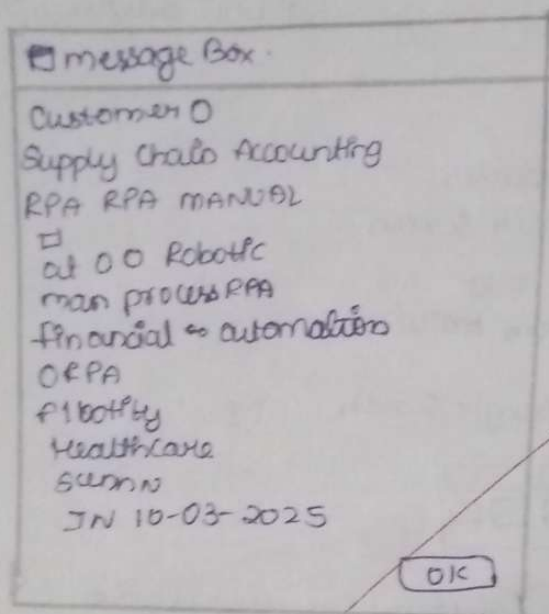 message Box.
Customer O
Supply Chain Accounting
RPA RPA MANUAL
at OO Robotic
man process RPA
financial ∞ automation
ORPA
Healthcare
JN 10-03-2025
OK